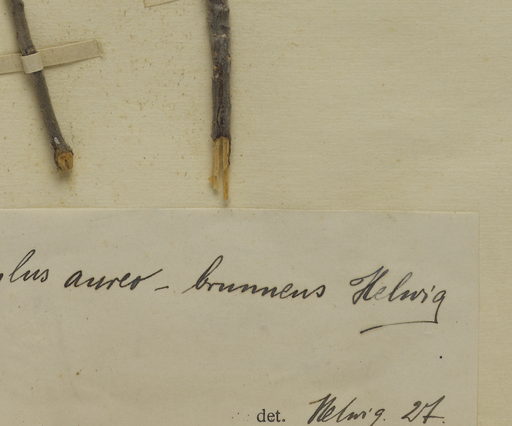 lus aureo - brunneus Helwig
det. Helwig. 27.